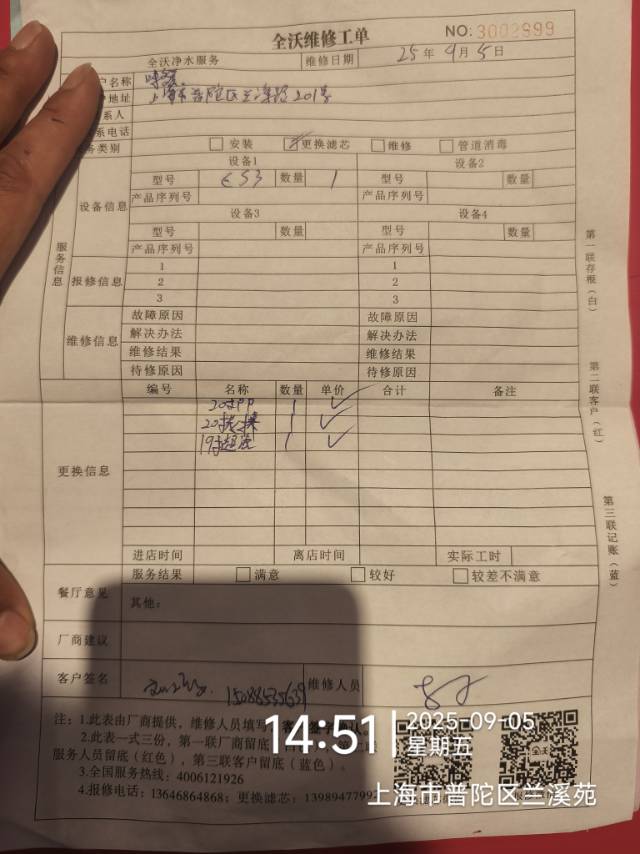 全沃维修工单
NO: 3002999
全沃净水服务 维修日期 25年9月5日
户名称
户地址 上海市普陀区兰溪路201号
系人
系电话
务类别 安装 更换滤芯 维修 管道消毒
设备1 设备2
设备信息 型号 ES3 数量 1 型号 数量
产品序列号 产品序列号
设备3 设备4
型号 数量 型号 数量
产品序列号 产品序列号
服务信息
报修信息 1 1
2 2
3 3
维修信息 故障原因 故障原因
解决办法 解决办法
维修结果 维修结果
待修原因 待修原因
编号 名称 数量 单价 合计 备注
20寸PP 1 ✓
20寸 1 ✓
19寸超滤 1 ✓
更换信息
进店时间 离店时间 实际工时
服务结果 满意 较好 较差不满意
餐厅意见 其他:
厂商建议
客户签名 15088535639 维修人员
注: 1.此表由厂商提供，维修人员填写，客
2.此表一式三份，第一联厂商留底
服务人员留底（红色），第三联客户留底（蓝色）。
3.全国服务热线: 4006121926
4.报修电话: 13646864868; 更换滤芯: 1398947799
第一联存根（白）
第二联客户（红）
第三联记账（蓝）
14:51
2025-09-05
星期五
上海市普陀区兰溪苑